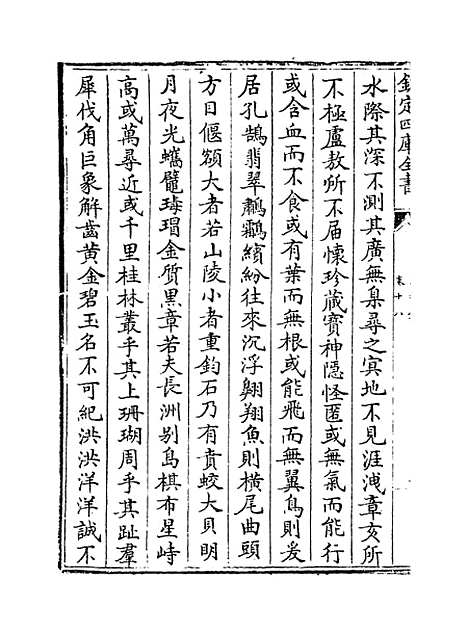 欽定四庫全書
水際其深不測其廣無臬尋之㝠地不見涯洩章亥所
不極盧敖所不届懷珍藏寳神隱怪匿或無氣而能行
或含血而不食或有葉而無根或能飛而無翼鳥則爰
居孔鵠翡翠鷫鸘繽紛往來沉浮翺翔魚則横尾曲頭
方目偃頟大者若山陵小者重鈞石乃有賁蛟大貝明
月夜光蠵鼊瑇瑁金質黒章若夫長洲别島棋布星峙
高或萬尋近或千里桂林叢乎其上珊瑚周乎其趾羣
犀代角巨象解齒黄金碧玉名不可紀洪洪洋洋誠不